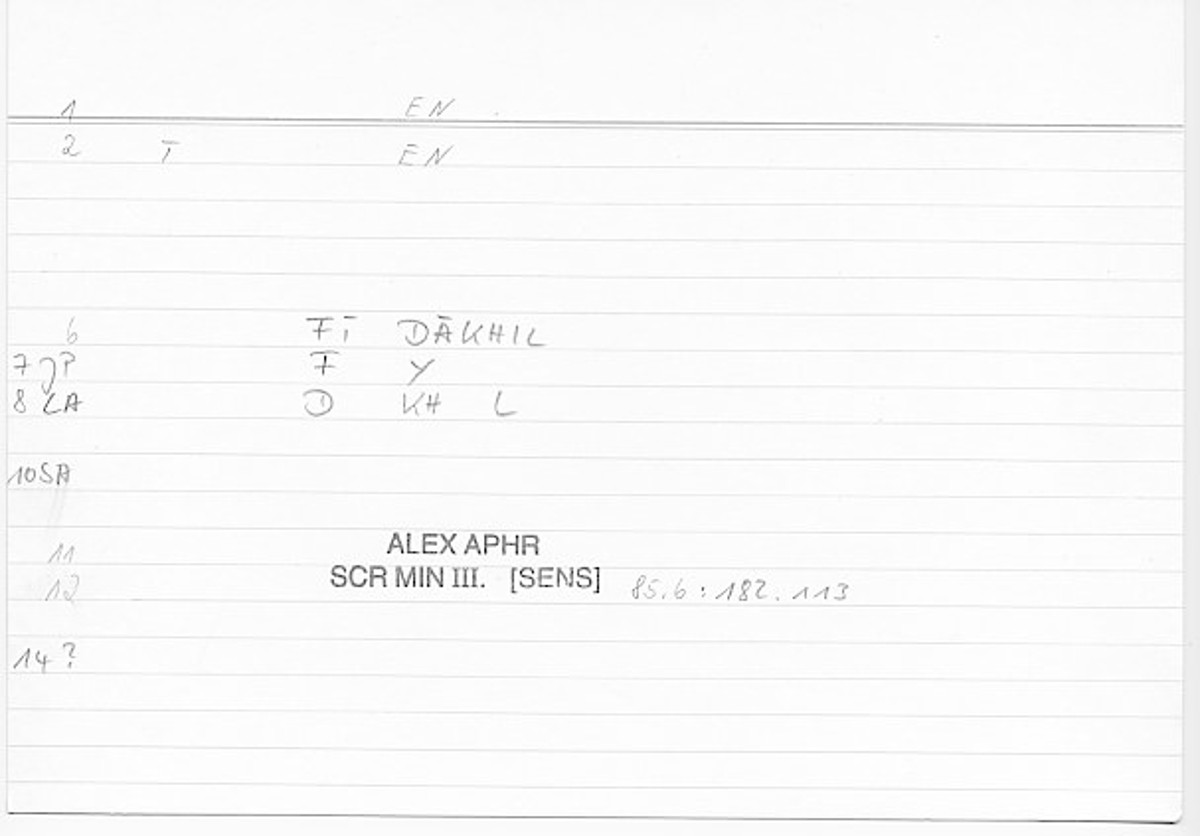 1 EN
2 T EN
6 FĪ DĀKHIL
7 JP F Y
8 LA D KH L
10 SA
11 ALEX APHR
SCR MIN III. [SENS] 85.6 : 182.113
12
14 ?